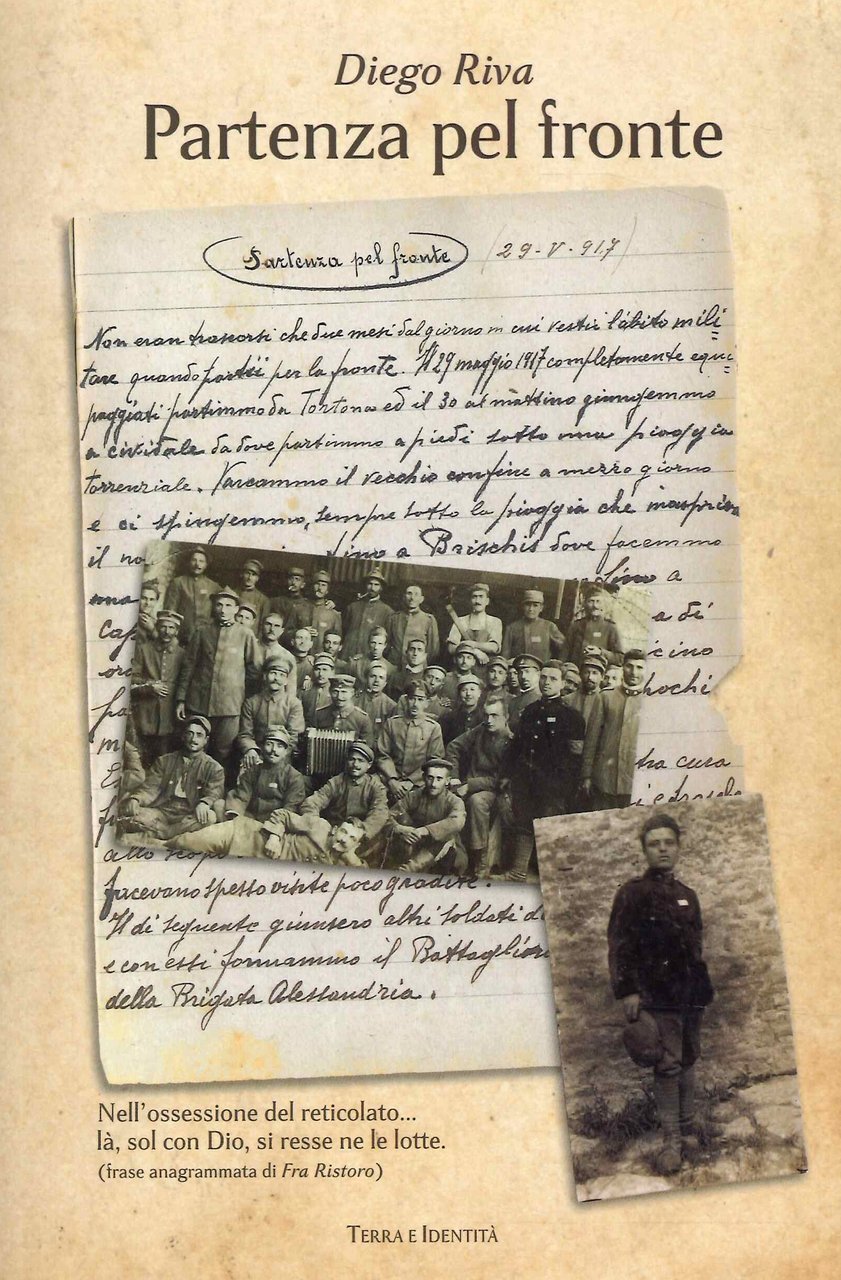 Diego Riva
Partenza pel fronte
Partenza pel fronte (29-V-917)
Non eran trascorsi che due mesi dal giorno in cui vestii l'abito mili=
tare quando partii per la fronte. Il 29 maggio 1917 completamente equi=
paggiati partimmo da Tortona ed il 30 al mattino giungemmo
a cividale da dove partimmo a piedi sotto una pioggia
torrenziale. Varcammo il vecchio confine a mezzo giorno
e ci spingemmo, sempre sotto la pioggia che inaspriva
il no fino a Brischis dove facemmo
una a
Cap a di
cino
pochi
tra cura
allo scopo
facevano spesso visite poco gradite.
Il dì seguente giunsero altri soldati d
e con essi formammo il Battaglion
della Brigata Alessandria.
Nell'ossessione del reticolato...
là, sol con Dio, si resse ne le lotte.
(frase anagrammata di Fra Ristoro)
Terra e Identità